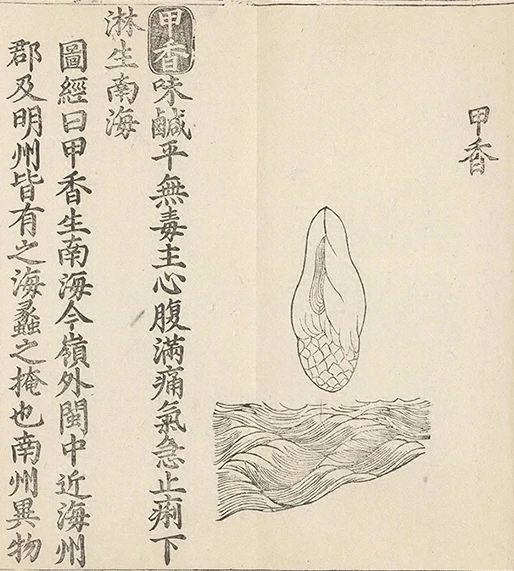 甲香
甲香味鹹平無毒主心腹滿痛氣急止痢下
淋生南海
圖經曰甲香生南海今嶺外閩中近海州
郡及明州皆有之海蠡之掩也南州異物